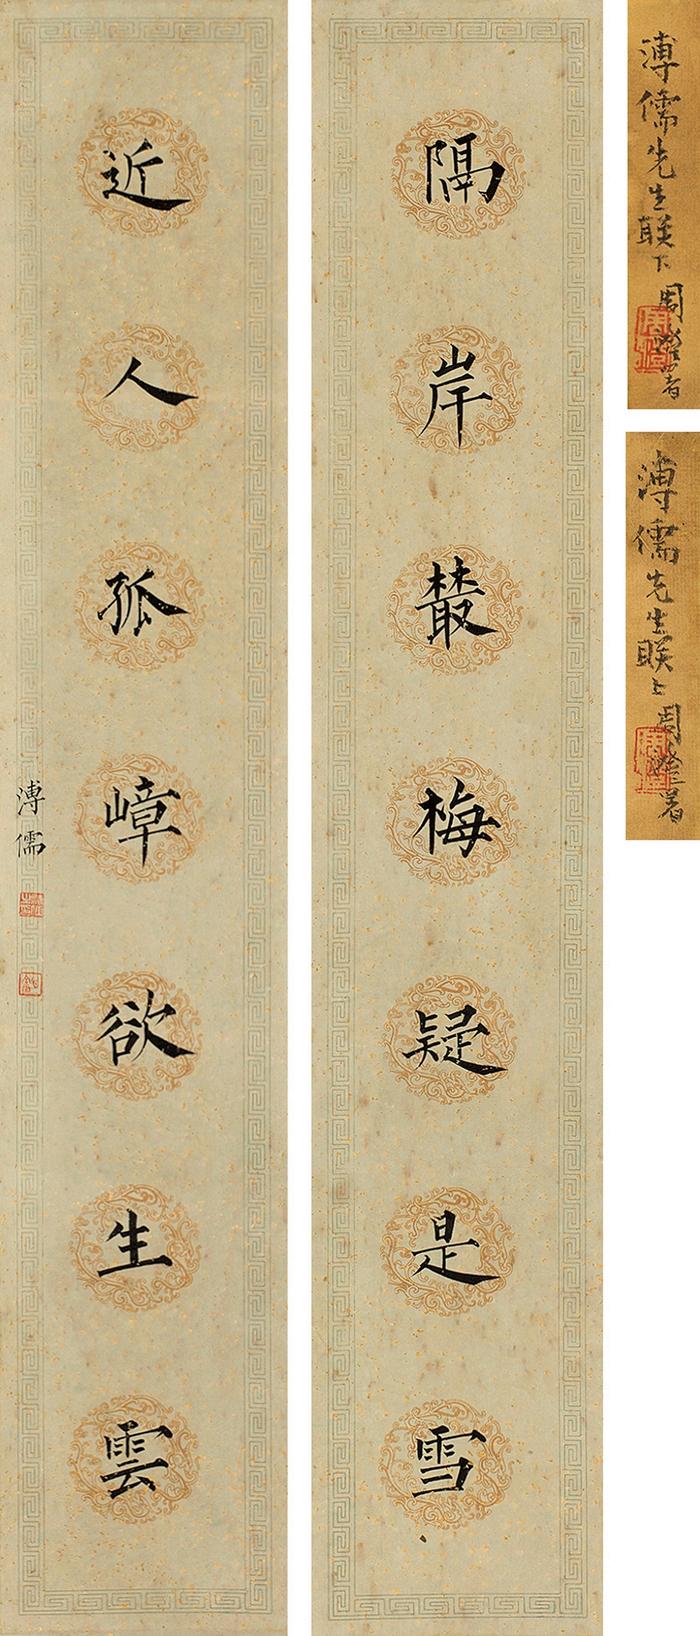 溥儒先生联下
周澄署
溥儒先生联上
周澄署
隔岸叢梅疑是雪
近人孤嶂欲生雲
溥儒